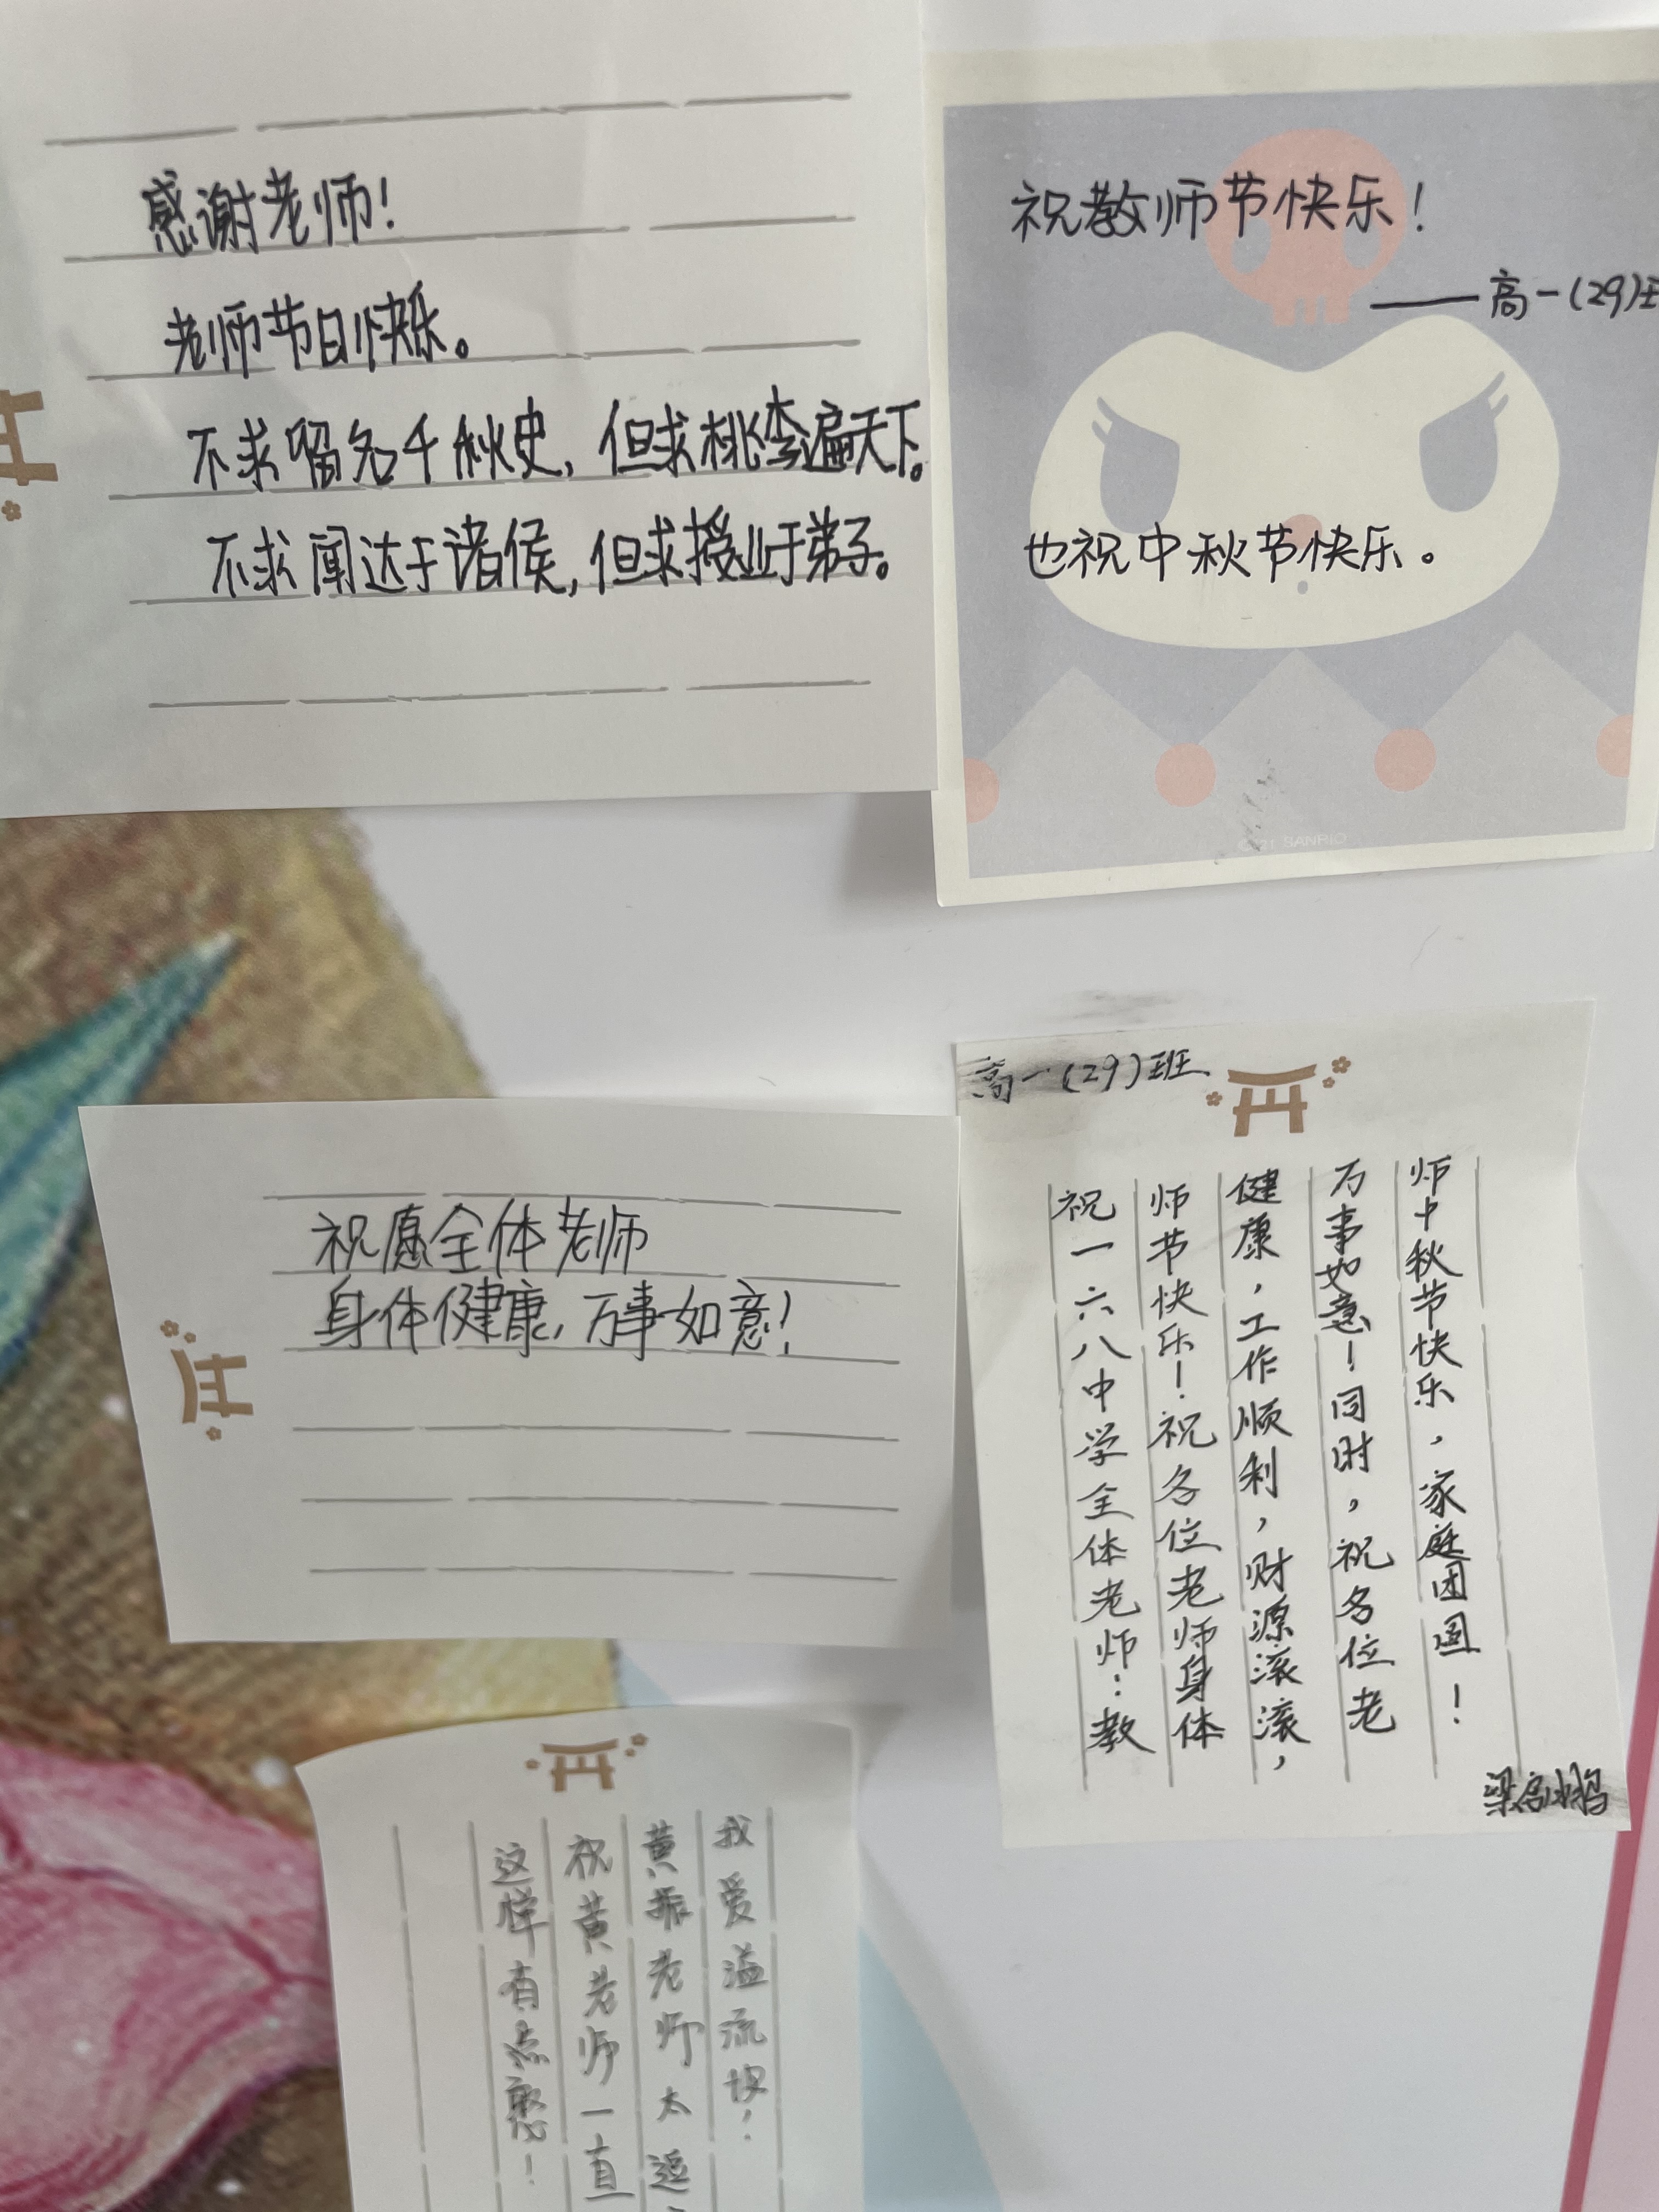 感谢老师!
老师节日快乐。
不求留名千秋史,但求桃李遍天下。
不求闻达于诸侯,但求授业于弟子。
祝教师节快乐!
——高一(29)
也祝中秋节快乐。
SANRIO
祝愿全体老师
身体健康,万事如意!
高一(29)班
祝一六八中学全体老师:教
师节快乐!祝各位老师身体
健康,工作顺利,财源滚滚,
万事如意!同时,祝各位老
师中秋节快乐,家庭团圆!
梁
我爱溢流
黄振老师太逗
祝黄老师一直
这样有点憨!